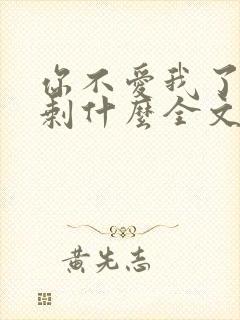 你不愛我了
剩什麼全文
黃先志